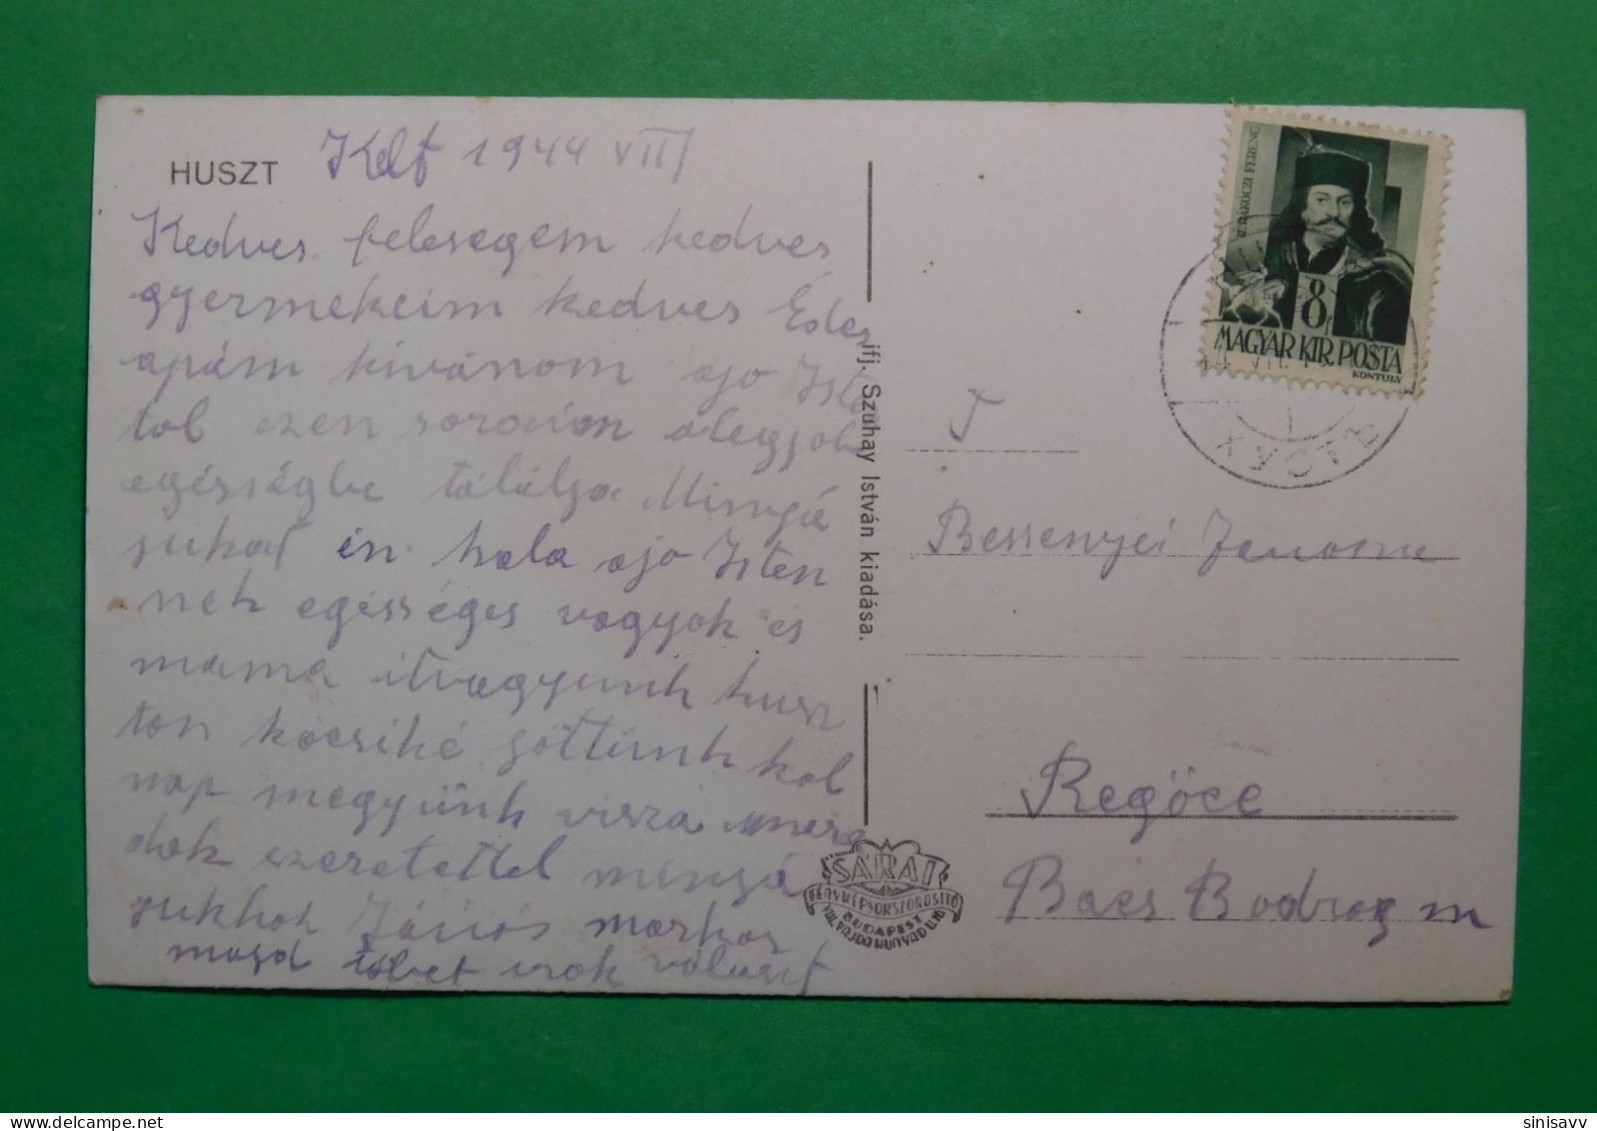 HUSZT Kelt 1944 VII
Kedves felesegem kedves
gyermekeim kedves Edes
apám kivánom ajo Iste
tol ezen soraim alegjob
egésségbe tálálja Mingá
jukat én hala ajo Isten
nek egésséges vagyok és
mama itvagyunk husz
ton kocsiké jöttünk hol
nap megyünk visza mera
dok szeretettel mingá
jukhok János morkor
majd többet irok választ
ifj. Szuhay István kiadása.
SÁRAI
FÉNYKÉPSOKSZOROSÍTÓ
BUDAPEST
VAJDAHUNYAD U.
II. RÁKÓCZI FERENC
8f
MAGYAR KIR. POSTA
KONTULY
T
Bessenyei Janosne
Regöce
Bacs Bodrog m
delcampe.net
sinisavv